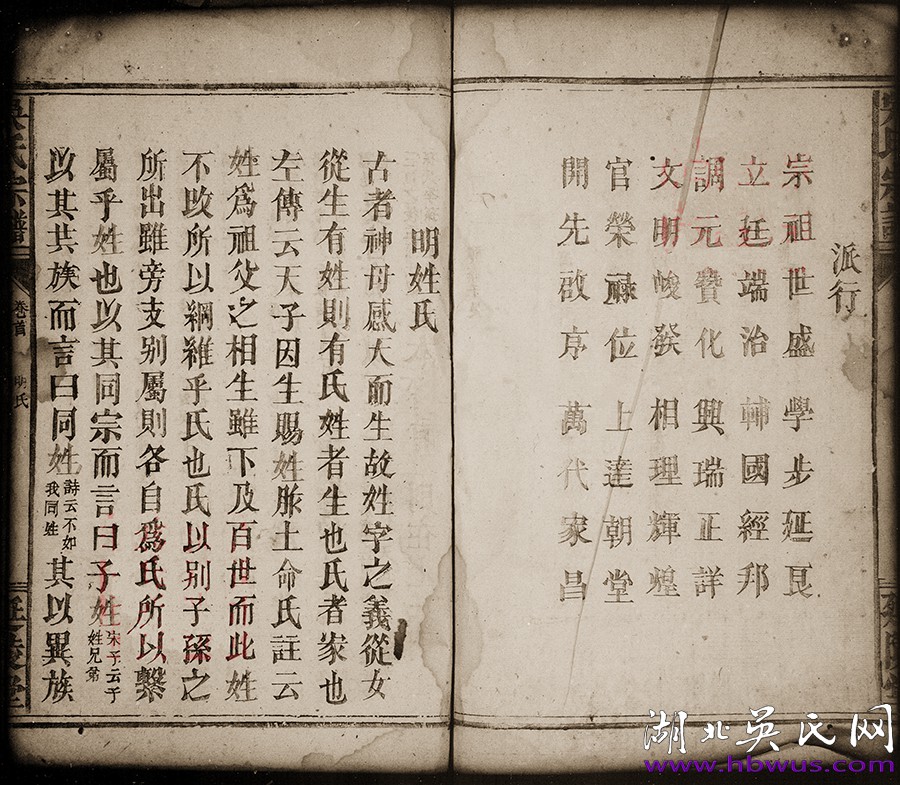 派行
宗祖世盛學步延良
立廷端治輔國經邦
調元贊化興瑞正詳
文明峻發相理輝煌
官榮祿位上達朝堂
開先啟序萬代家昌
明姓氏
古者神母感天而生故姓字之義從女
從生有姓則有氏姓者生也氏者家也
左傳云天子因生賜姓胙土命氏註云
姓爲祖父之相生雖下及百世而此姓
不改所以綱維乎氏也氏以别子孫之
所出雖旁支别屬則各自爲氏所以繫
屬乎姓也以其同宗而言曰子姓宋子云子姓兄弟
以其共族而言曰同姓詩云不如我同姓其以異族
吳氏宗譜
卷首
明氏
延陵堂
湖北吳氏网
www.hbwus.com